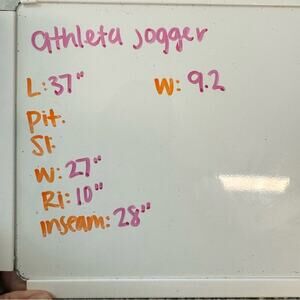 athleta jogger
L: 37" W: 9.2
Pit:
Sl:
W: 27"
Ri: 10"
inseam: 28"